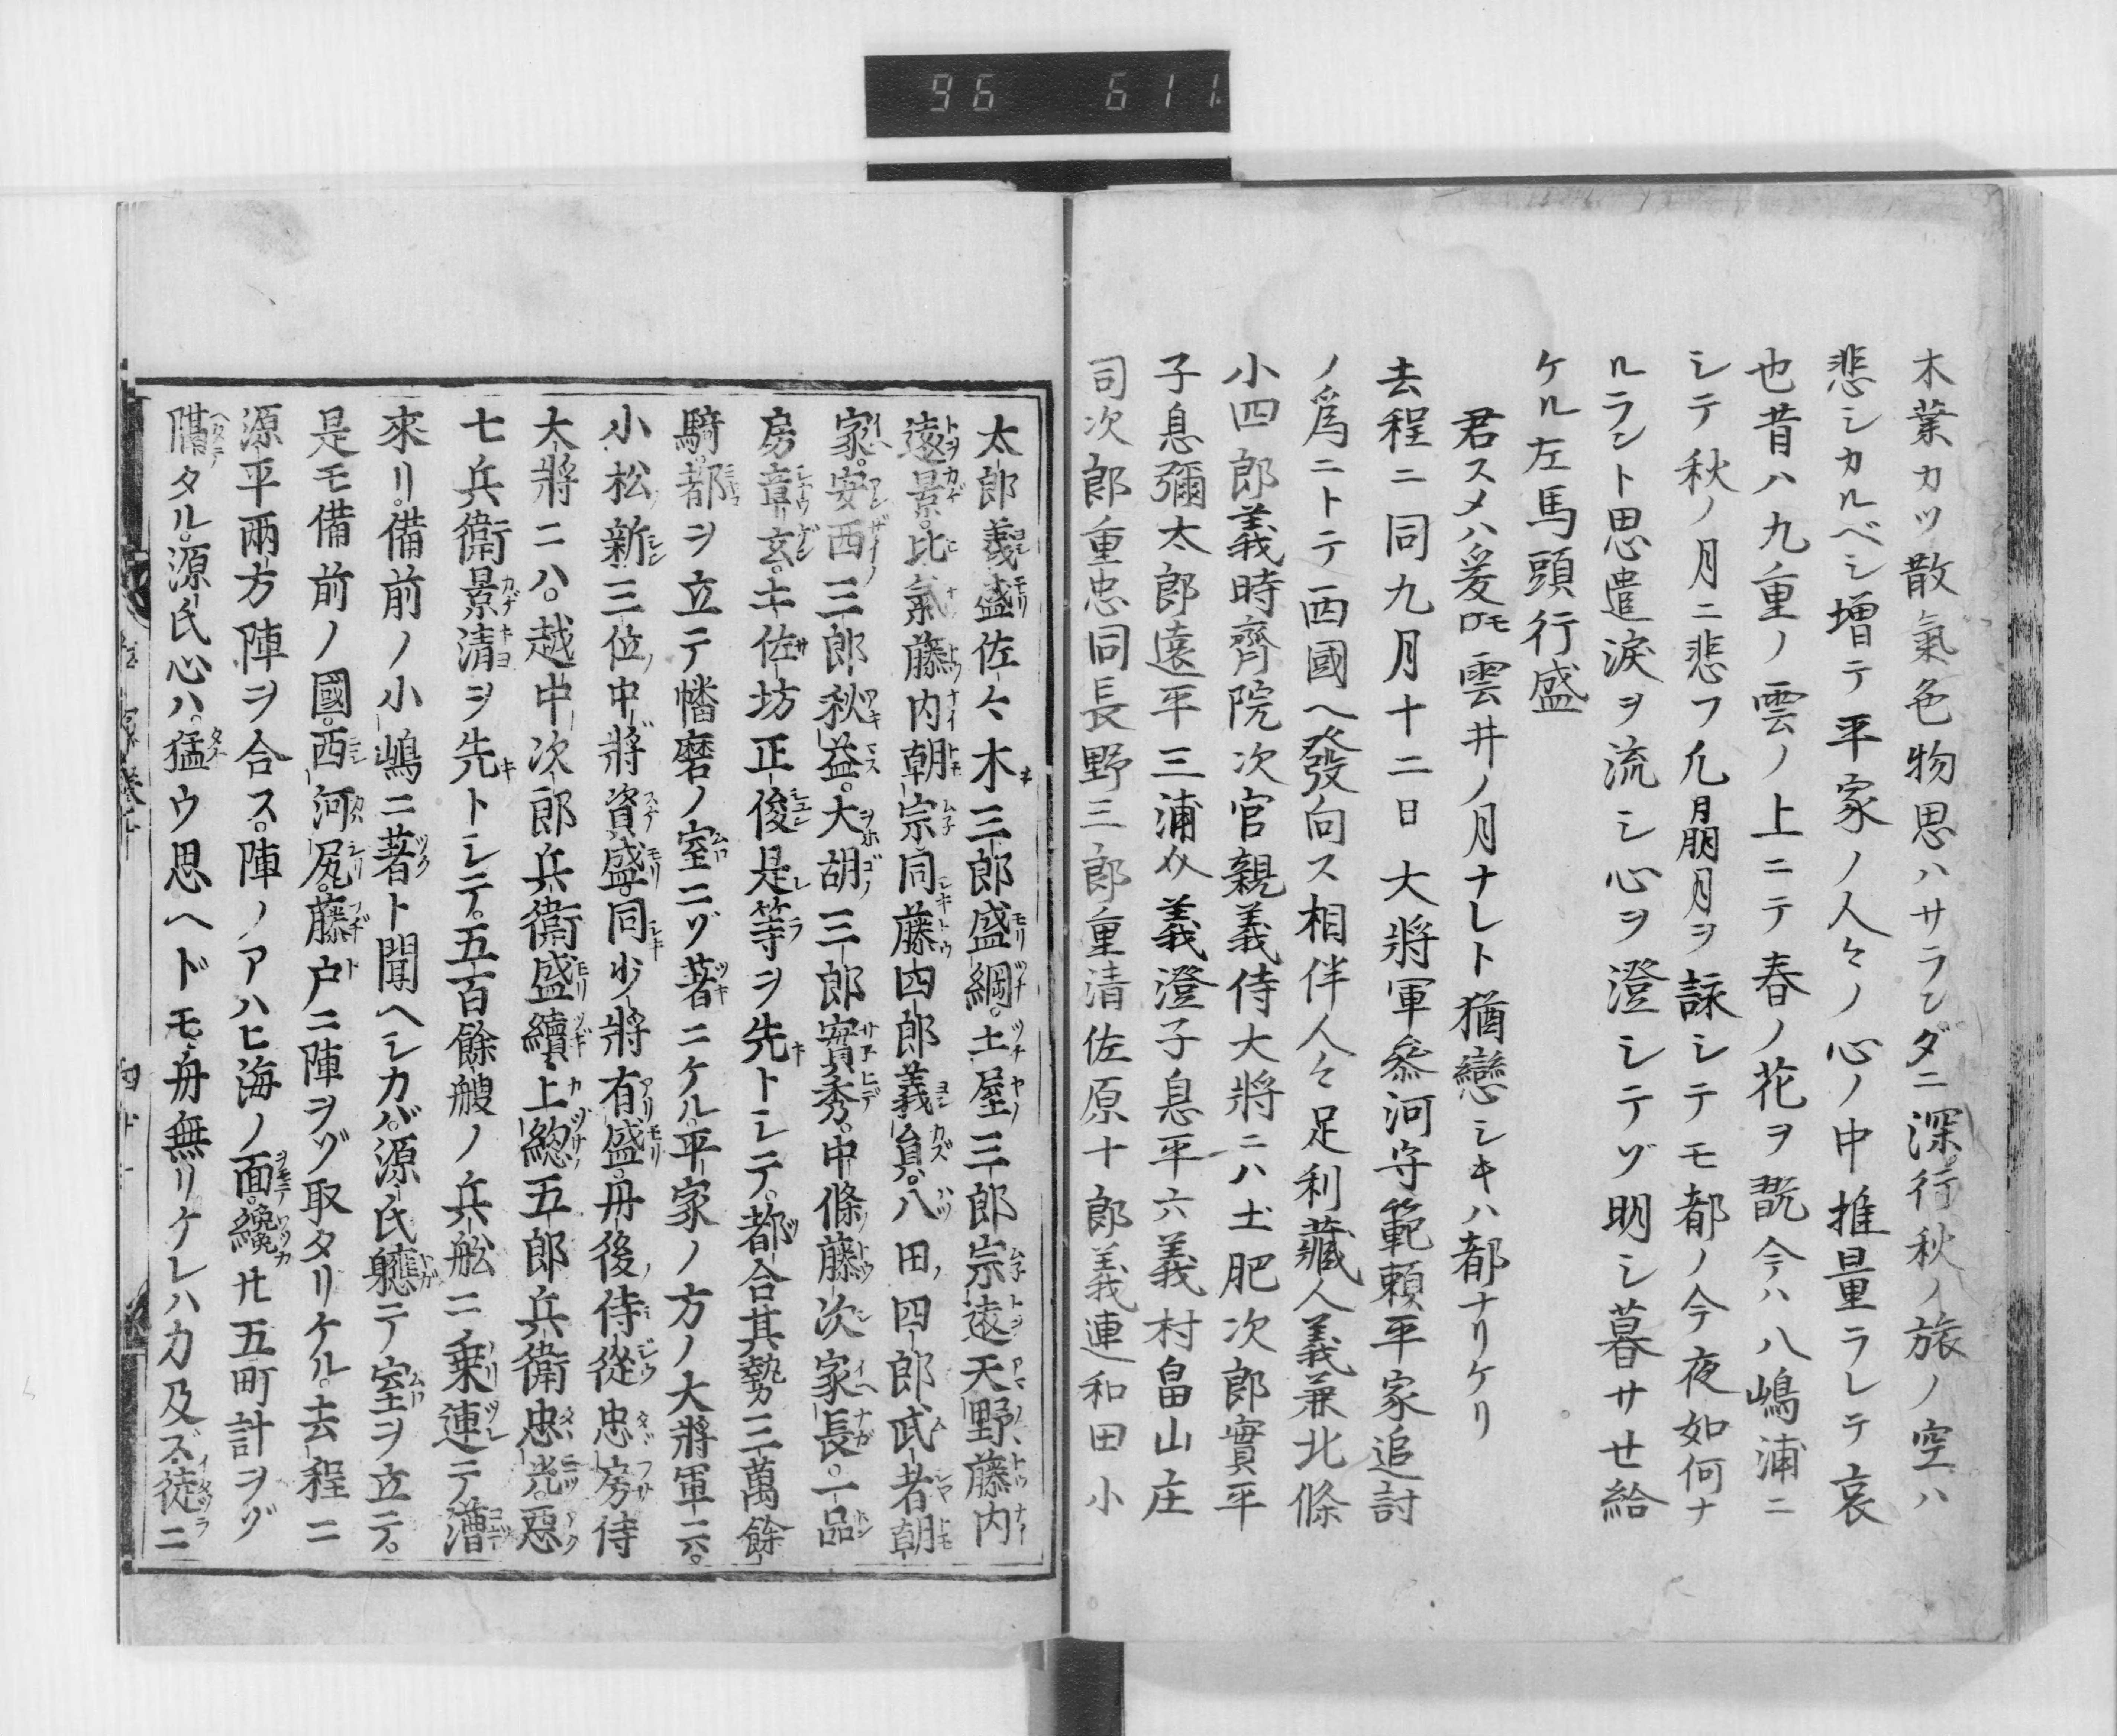 96 611
木葉カツ散氣色物思ハサランダニ深行秋ノ旅ノ空ハ
悲シカルベシ増テ平家ノ人々ノ心ノ中推量ラレテ哀
也昔ハ九重ノ雲ノ上ニテ春ノ花ヲ翫今ハ八嶋浦ニ
シテ秋ノ月ニ悲フ凡月月ヲ詠シテモ都ノ今夜如何ナ
ルラント思遣涙ヲ流シ心ヲ澄シテゾ明シ暮サセ給
ケル左馬頭行盛
君スメハ爰モ雲井ノ月ナレト猶戀シキハ都ナリケリ
去程ニ同九月十二日大將軍參河守範賴平家追討
ノ爲ニトテ西國ヘ發向ス相伴人々足利藏人義兼北條
小四郎義時齊院次官親義侍大將ニハ土肥次郎實平
子息彌太郎遠平三浦介義澄子息平六義村畠山庄
司次郎重忠同長野三郎重清佐原十郎義連和田小
太郎義盛佐々木三郎盛綱土屋三郎宗遠天野藤内
遠景比氣藤内朝宗同藤四郎義員八田四郎武者朝
家安西三郎秋益大胡三郎實秀中條藤次家長一品
房章玄土佐坊正俊是等ヲ先トシテ都合其勢三萬餘
騎都ヲ立テ幡磨ノ室ニゾ著ニケル平家ノ方ノ大將軍ニハ
小松新三位中將資盛同少將有盛丹後侍從忠房侍
大將ニハ越中次郎兵衛盛續上總五郎兵衛忠光惡
七兵衛景清ヲ先トシテ五百餘艘ノ兵舩ニ乗連テ漕
來リ備前ノ小嶋ニ著ト聞ヘシカバ源氏軈テ室ヲ立テ
是モ備前ノ國西河尻藤戸ニ陣ヲゾ取タリケル去程ニ
源平兩方陣ヲ合ス陣ノアハヒ海ノ面纔廿五町計ヲゾ
隔タル源氏心ハ猛ウ思ヘドモ舟無リケレハ力及ズ徒ニ